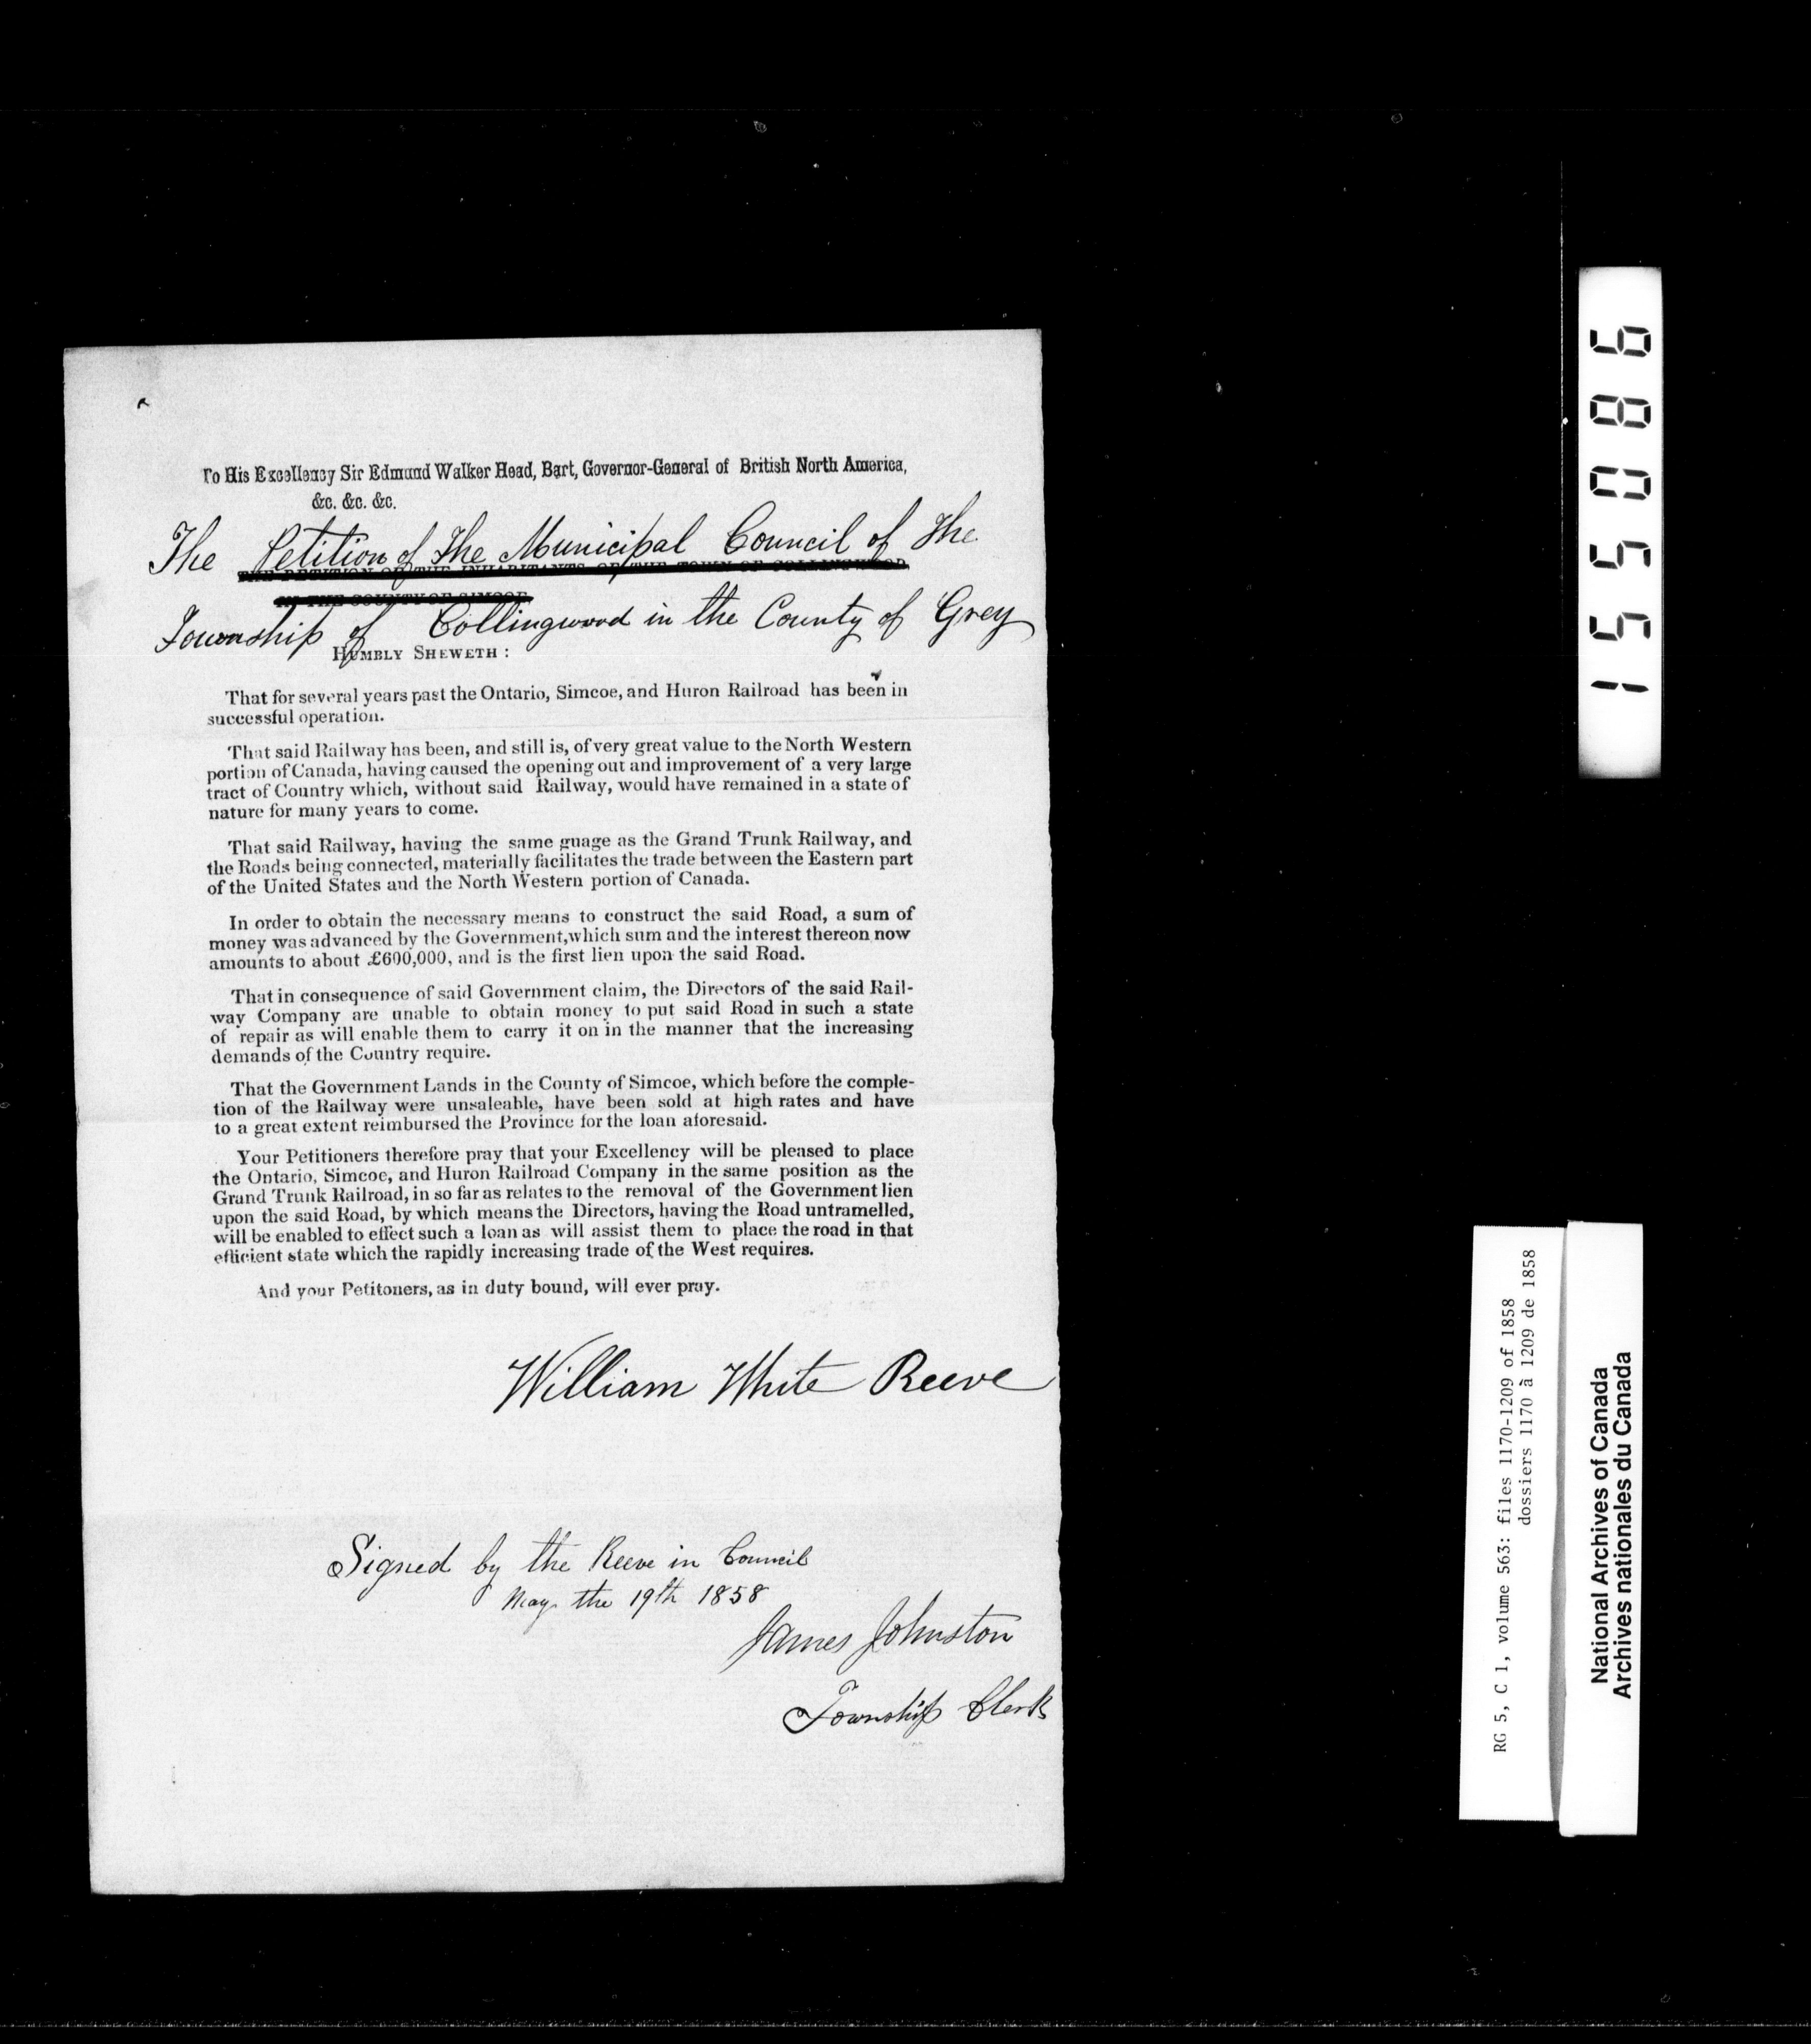 To His Excellency Sir Edmund Walker Head, Bart, Governor-General of British North America,
&c. &c. &c.
The Petition of The Municipal Council of The
THE PETITION OF THE INHABITANTS OF THE TOWN OF COLLINGWOOD
IN THE COUNTY OF SIMCOE
Township of Collingwood in the County of Grey
HUMBLY SHEWETH :
That for several years past the Ontario, Simcoe, and Huron Railroad has been in
successful operation.
That said Railway has been, and still is, of very great value to the North Western
portion of Canada, having caused the opening out and improvement of a very large
tract of Country which, without said Railway, would have remained in a state of
nature for many years to come.
That said Railway, having the same guage as the Grand Trunk Railway, and
the Roads being connected, materially facilitates the trade between the Eastern part
of the United States and the North Western portion of Canada.
In order to obtain the necessary means to construct the said Road, a sum of
money was advanced by the Government, which sum and the interest thereon now
amounts to about £600,000, and is the first lien upon the said Road.
That in consequence of said Government claim, the Directors of the said Rail-
way Company are unable to obtain money to put said Road in such a state
of repair as will enable them to carry it on in the manner that the increasing
demands of the Country require.
That the Government Lands in the County of Simcoe, which before the comple-
tion of the Railway were unsaleable, have been sold at high rates and have
to a great extent reimbursed the Province for the loan aforesaid.
Your Petitioners therefore pray that your Excellency will be pleased to place
the Ontario, Simcoe, and Huron Railroad Company in the same position as the
Grand Trunk Railroad, in so far as relates to the removal of the Government lien
upon the said Road, by which means the Directors, having the Road untramelled,
will be enabled to effect such a loan as will assist them to place the road in that
efficient state which the rapidly increasing trade of the West requires.
And your Petitoners, as in duty bound, will ever pray.
William White Reeve
Signed by the Reeve in Council
May the 19th 1858
James Johnston
Township Clerk
155086
RG 5, C 1, volume 563: files 1170-1209 of 1858
dossiers 1170 à 1209 de 1858
National Archives of Canada
Archives nationales du Canada